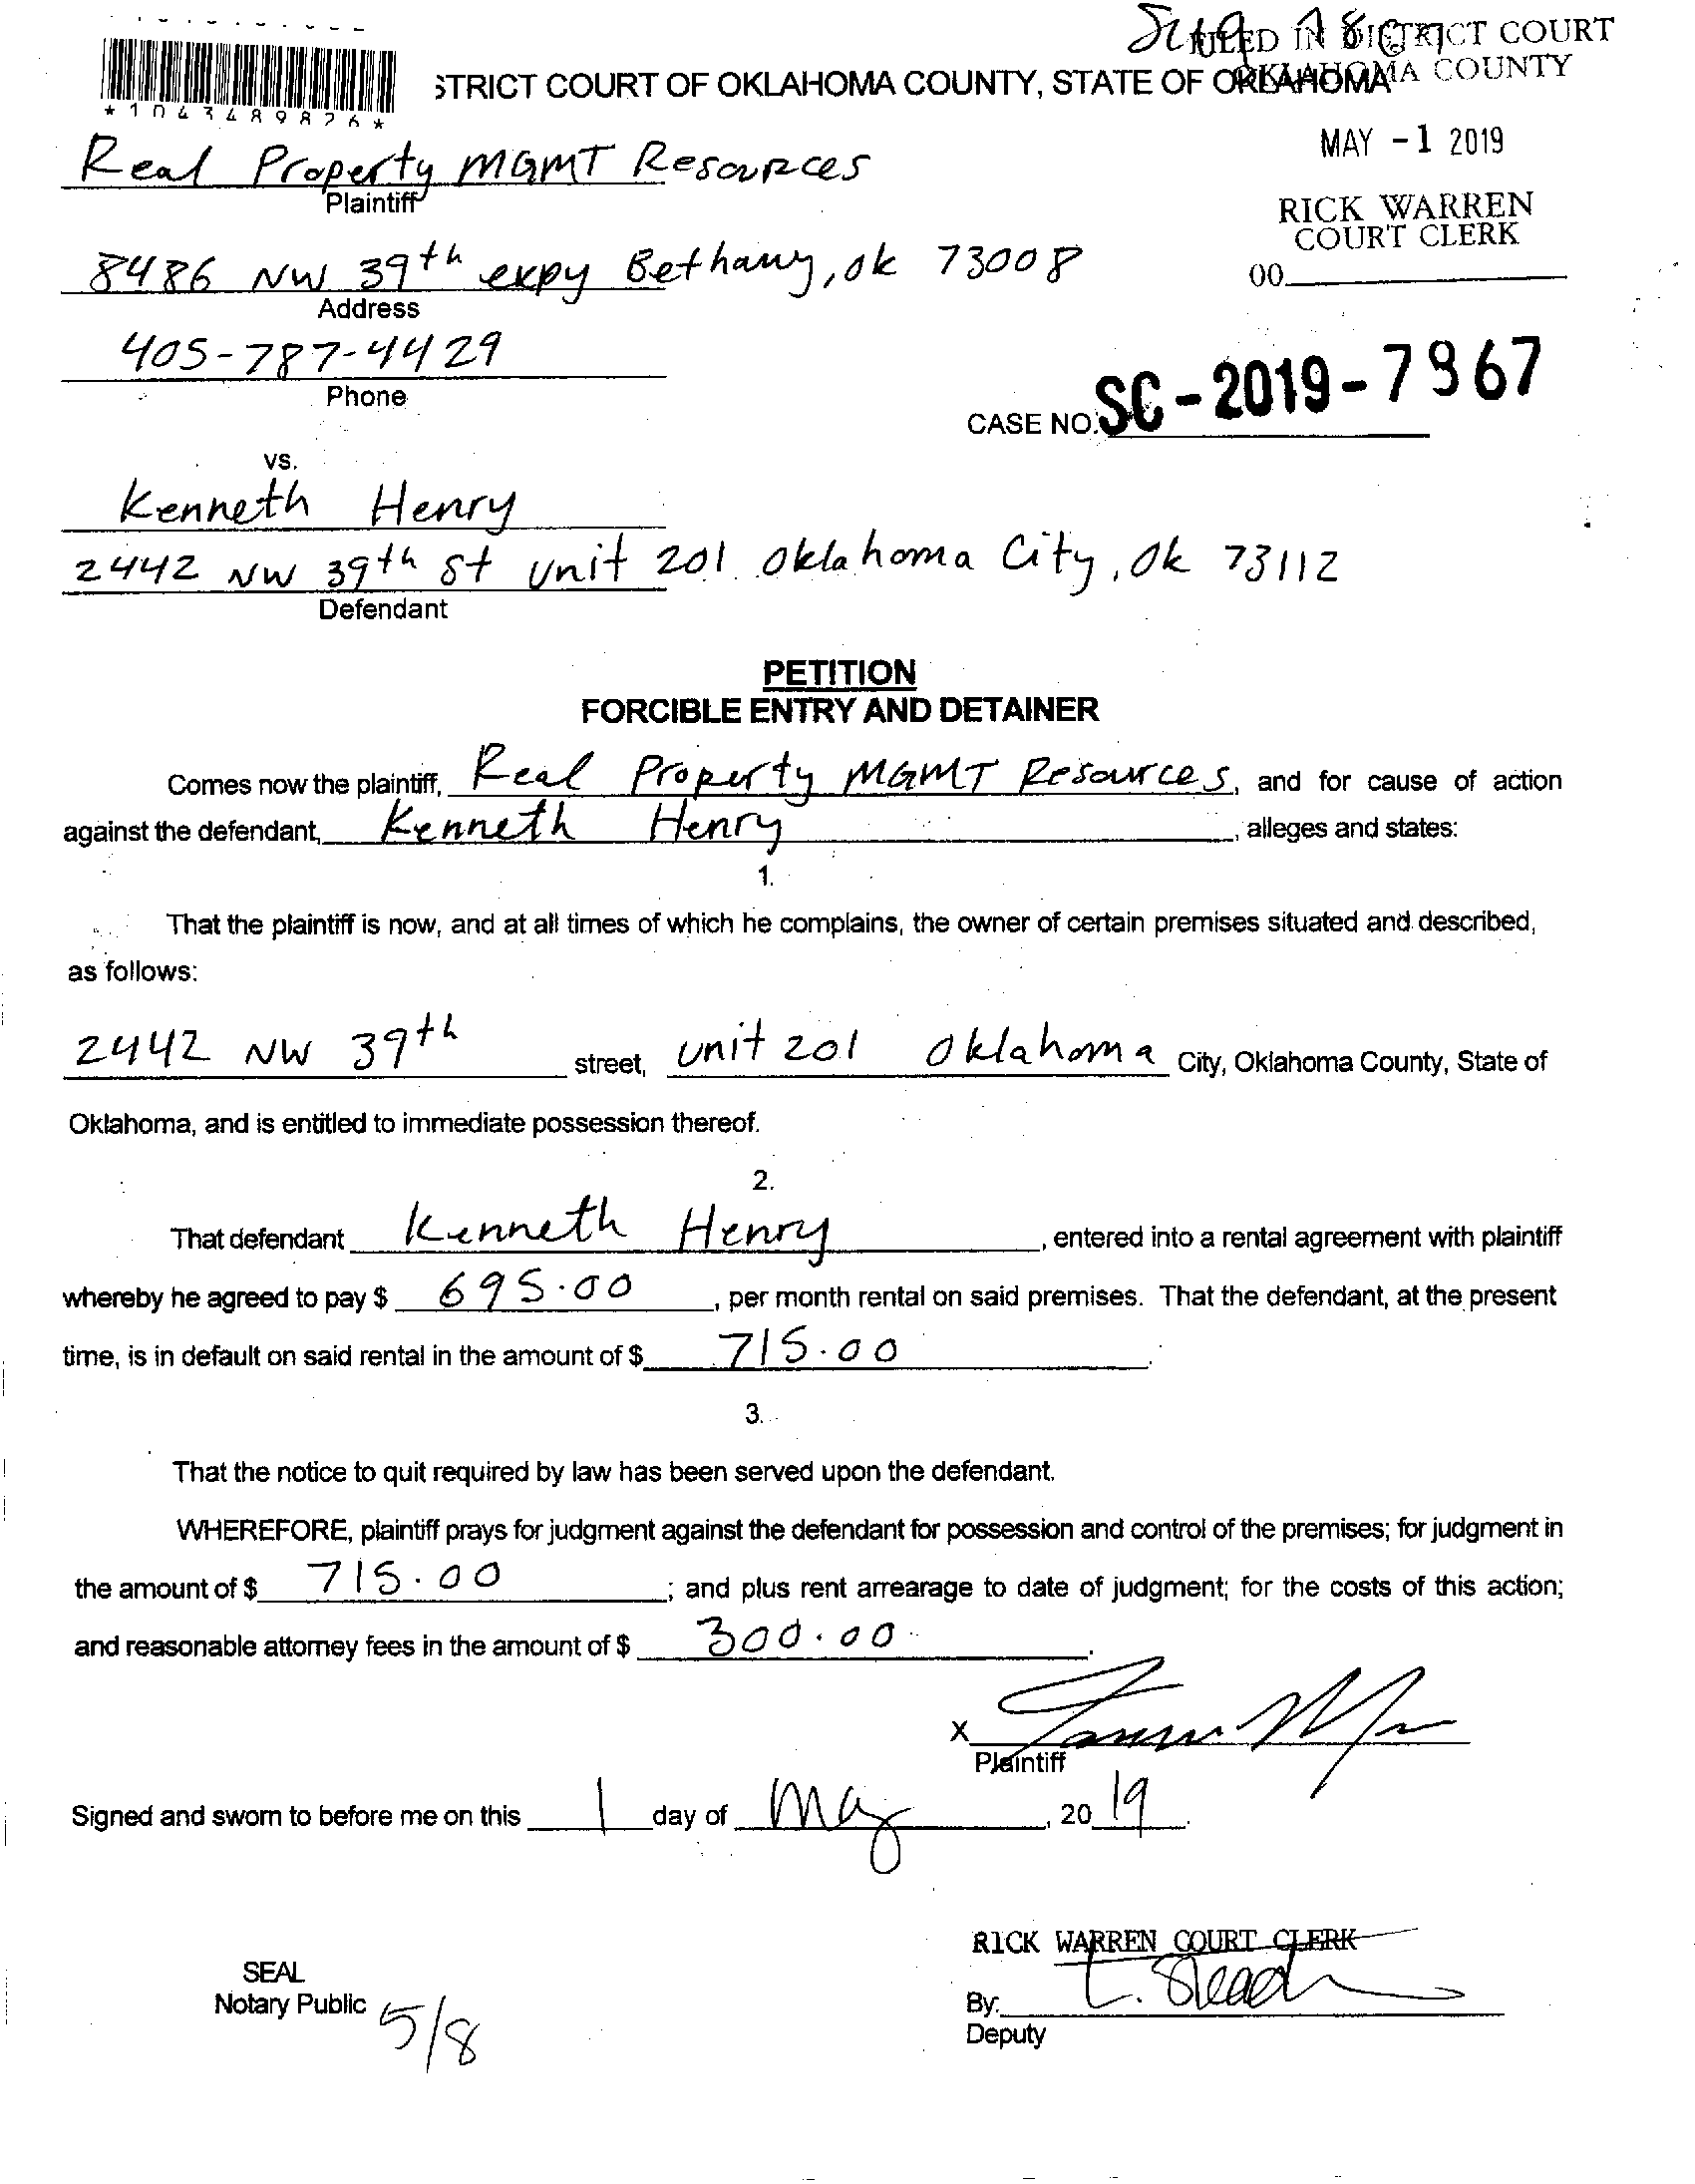 FILED IN DISTRICT COURT
STRICT COURT OF OKLAHOMA COUNTY, STATE OF OKLAHOMA
OKLAHOMA COUNTY
*1043489876*
MAY -1 2019
Real Property MGMT Resources
Plaintiff
RICK WARREN
COURT CLERK
8486 NW 39th expy Bethany, ok 73008
00
Address
405-787-4429
Phone
CASE NO. SC-2019-7967
vs.
Kenneth Henry
2442 NW 39th St Unit 201 Oklahoma City, Ok 73112
Defendant
PETITION
FORCIBLE ENTRY AND DETAINER
Comes now the plaintiff, Real Property MGMT Resources, and for cause of action
against the defendant, Kenneth Henry, alleges and states:
1.
That the plaintiff is now, and at all times of which he complains, the owner of certain premises situated and described,
as follows:
2442 NW 39th street, Unit 201 Oklahoma City, Oklahoma County, State of
Oklahoma, and is entitled to immediate possession thereof.
2.
That defendant Kenneth Henry, entered into a rental agreement with plaintiff
whereby he agreed to pay $ 695.00, per month rental on said premises. That the defendant, at the present
time, is in default on said rental in the amount of $ 715.00.
3.
That the notice to quit required by law has been served upon the defendant.
WHEREFORE, plaintiff prays for judgment against the defendant for possession and control of the premises; for judgment in
the amount of $ 715.00; and plus rent arrearage to date of judgment; for the costs of this action;
and reasonable attorney fees in the amount of $ 300.00.
X
Plaintiff
Signed and sworn to before me on this 1 day of May, 2019.
RICK WARREN COURT CLERK
SEAL
Notary Public 5/8
By:
Deputy